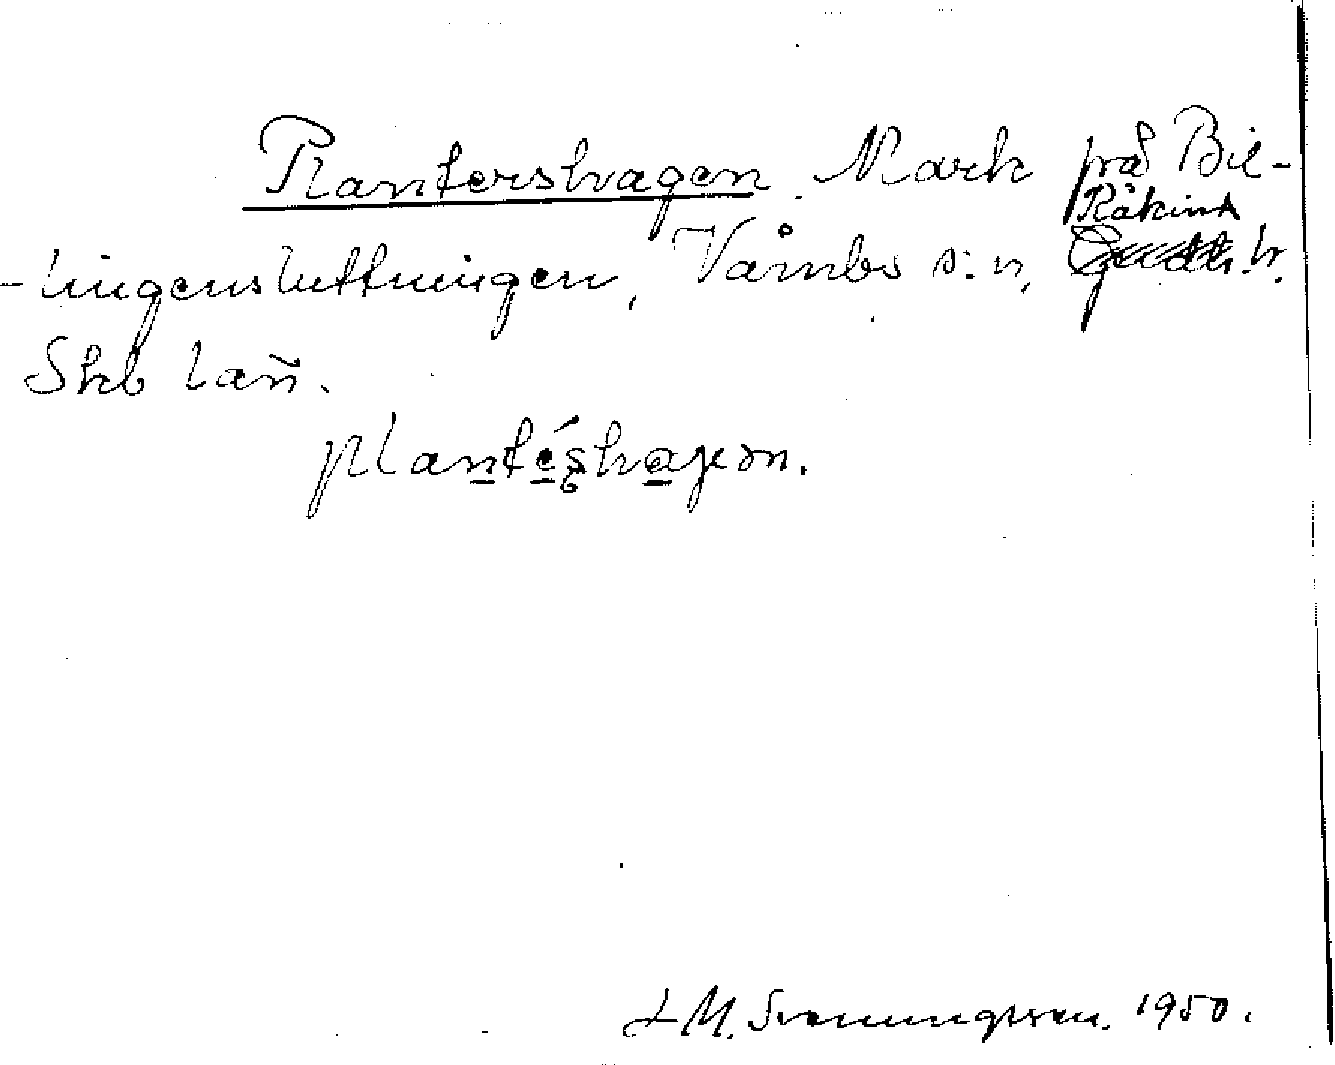 Plantershagen. Mark på Bil-
Kåkind
-lingensluttningen, Våmbs s:n, h.
Skb län.
plantéshagen.
L M. Svenungsson. 1950.